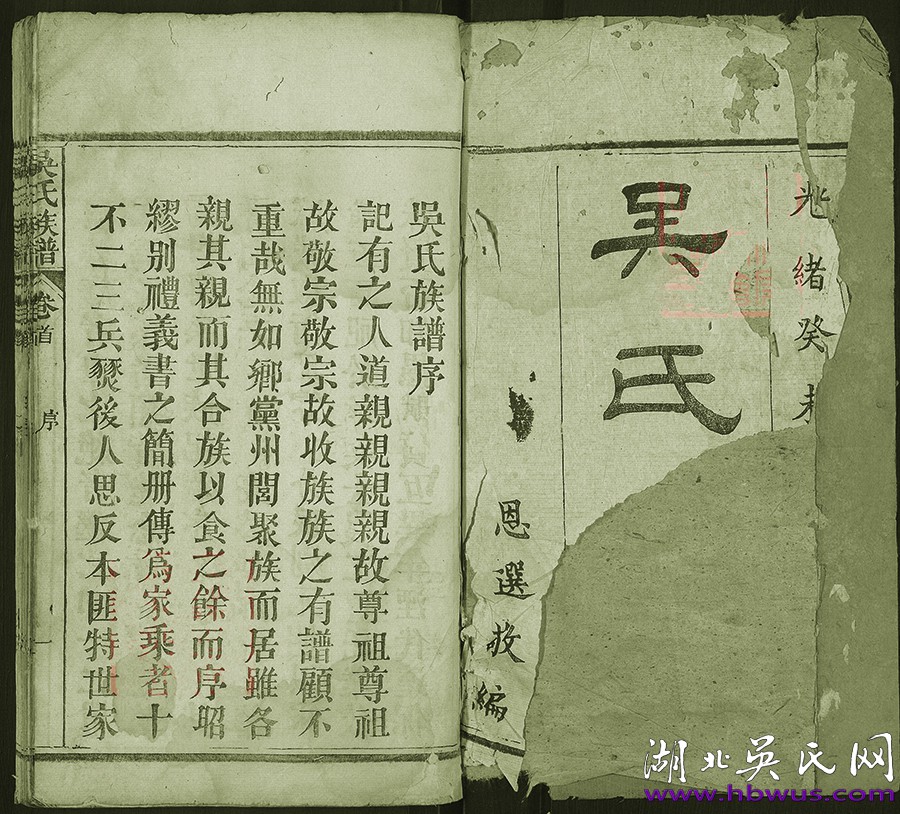 光緒癸未
吳氏
恩選敬編
吳氏族譜序
記有之人道親親親親故尊祖尊祖
故敬宗敬宗故收族族之有譜顧不
重哉無如鄉黨州閭聚族而居雖各
親其親而其合族以食之餘而序昭
繆别禮義書之簡册傳爲家乘者十
不二三兵燹後人思反本匪特世家
吳氏族譜 卷首 序
湖北吴氏网
www.hbwus.com